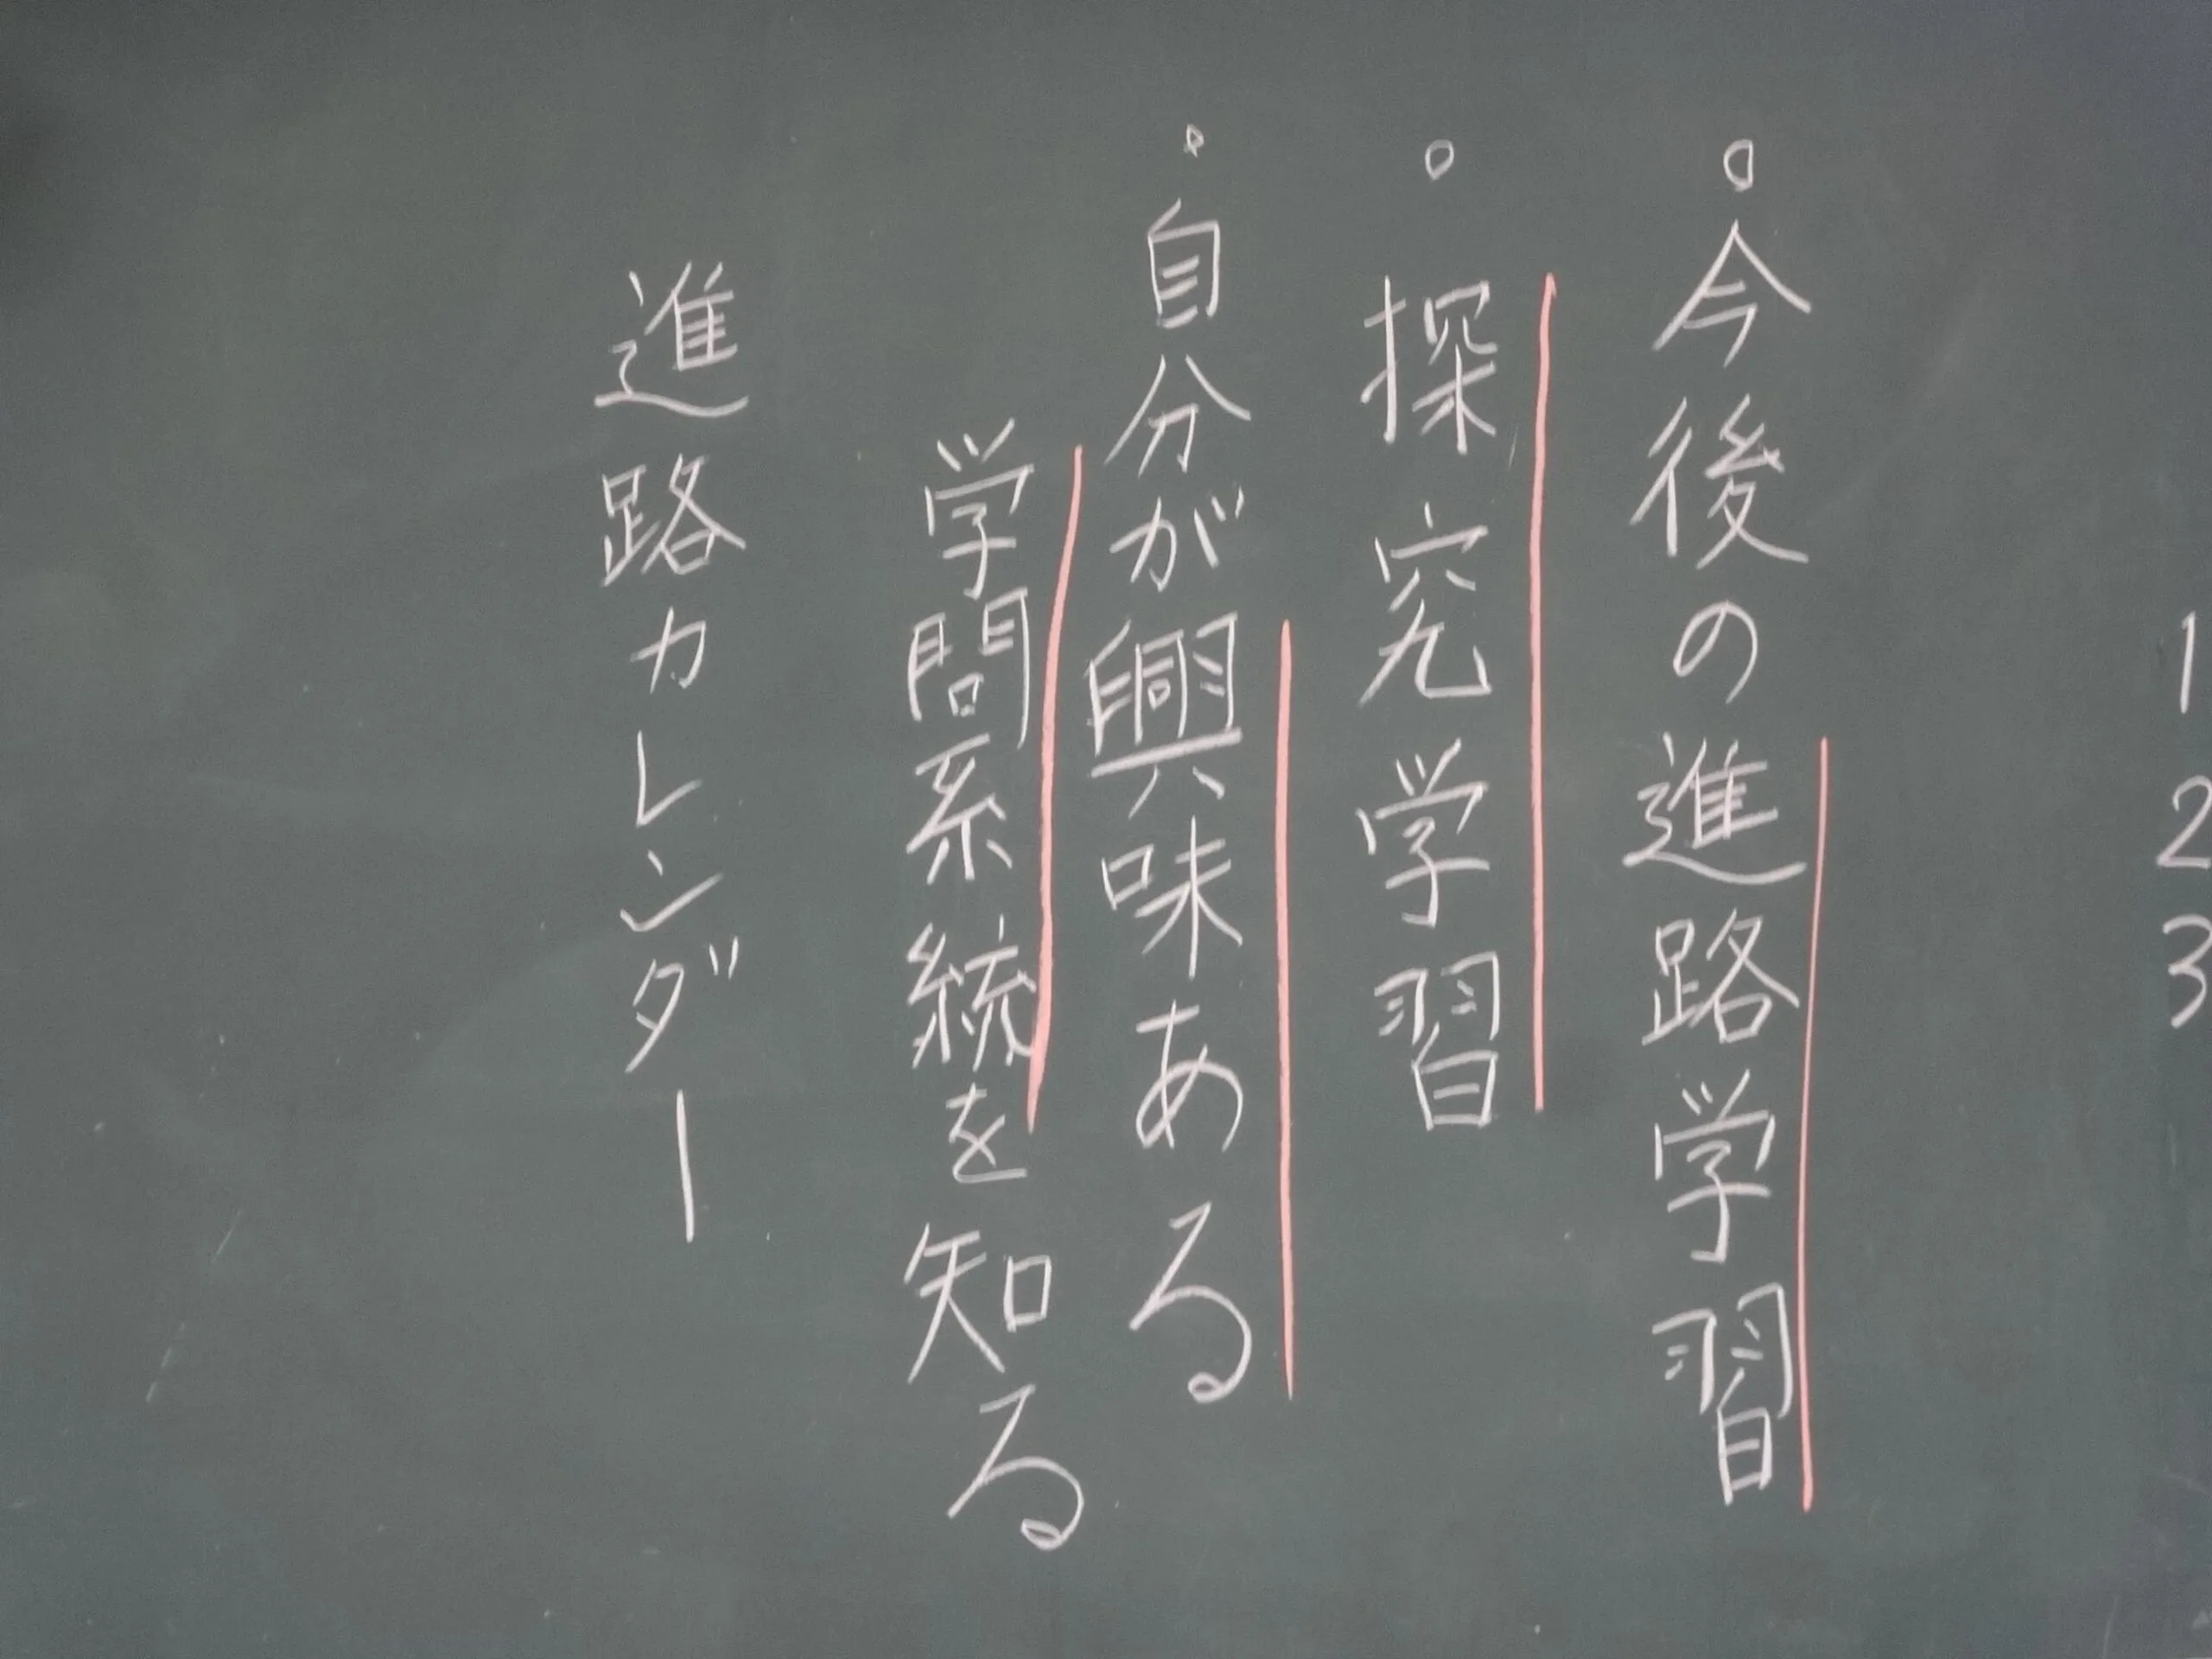 1
2
3
○今後の進路学習
○探究学習
・自分が興味ある
学問系統を知る
進路カレンダー